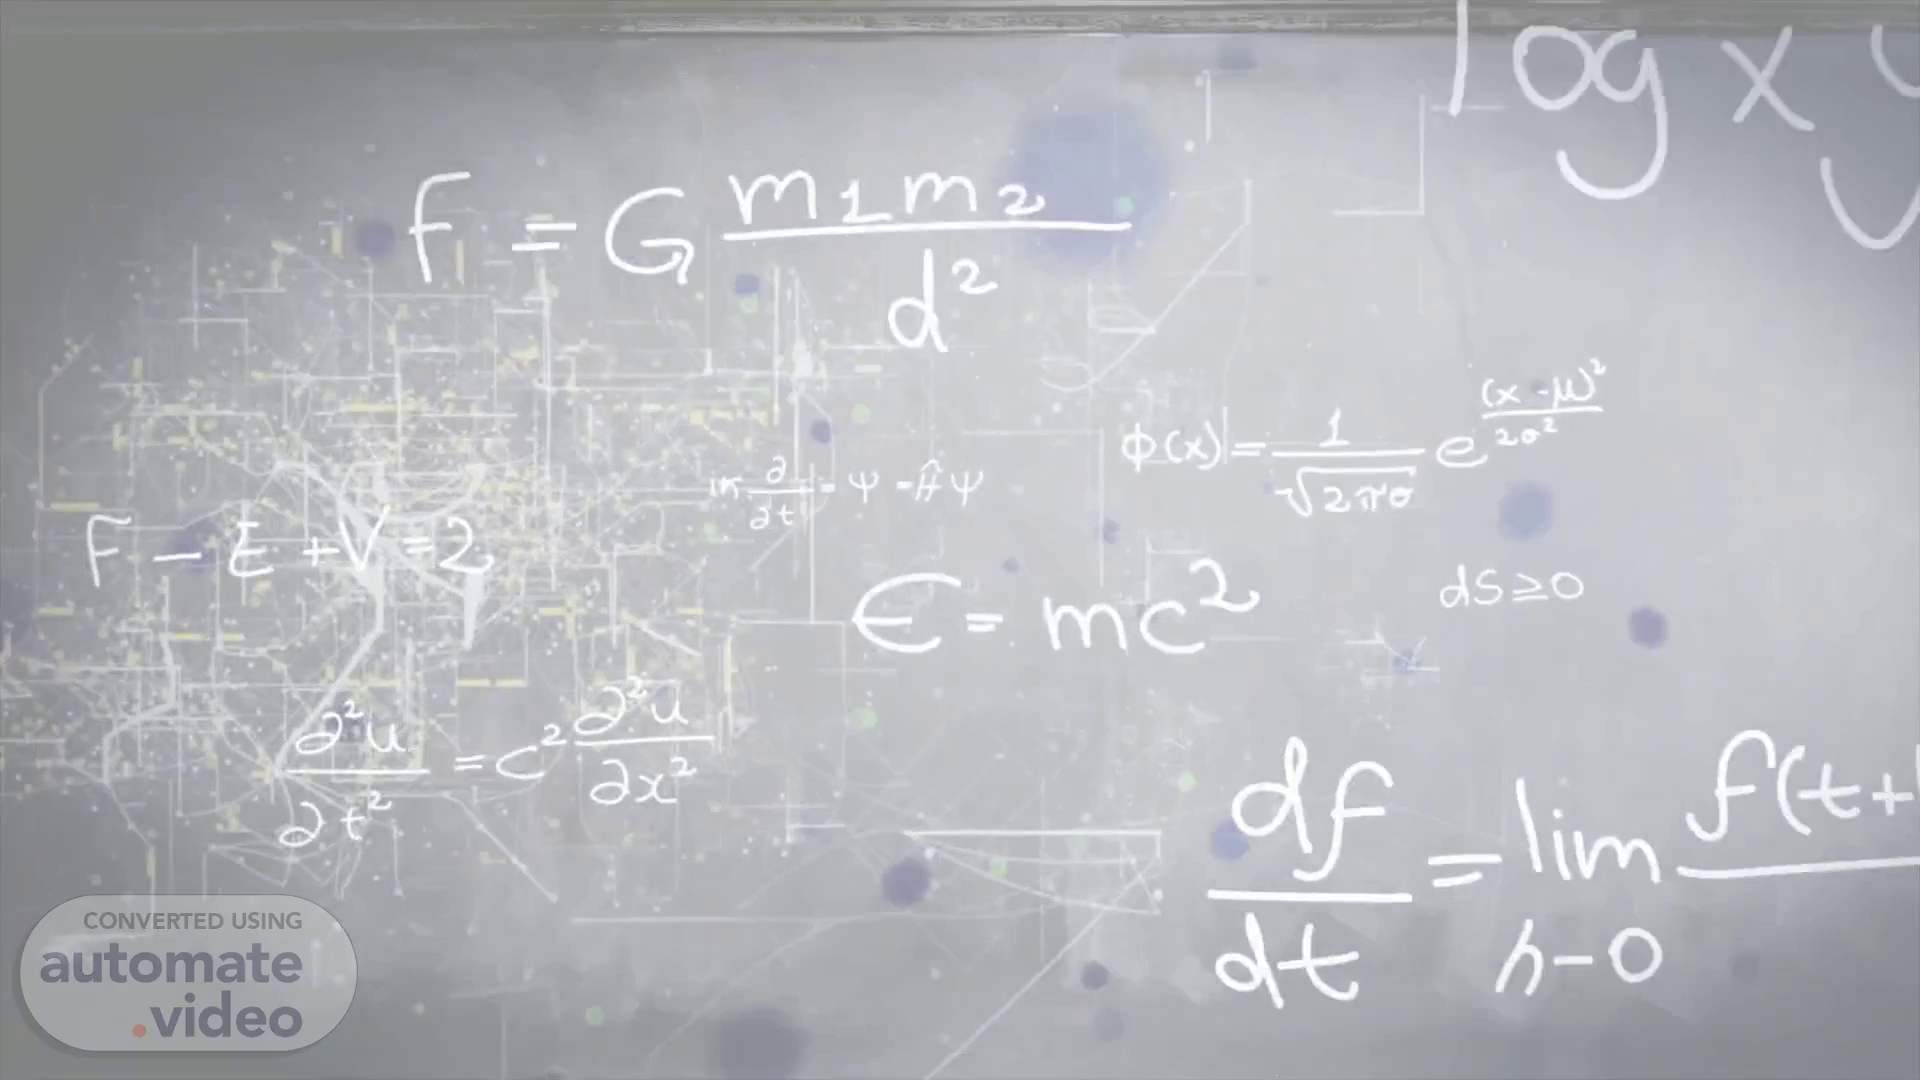 log x y
F = G m1 m2 / d²
ϕ(x) = 1 / √2πσ e (x - μ)² / 2σ²
∂ / ∂t = Ψ - Ĥ Ψ
F - E + V = 2
dS ≥ 0
E = mc²
∂²u / ∂t² = c² ∂²u / ∂x²
df / dt = lim h - 0 f(t+
CONVERTED USING
automate
.video